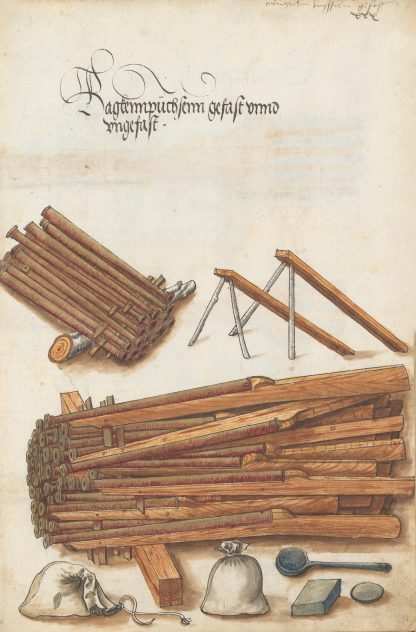 Hagkennpüchsenn gefast vnnd
vngefast ·